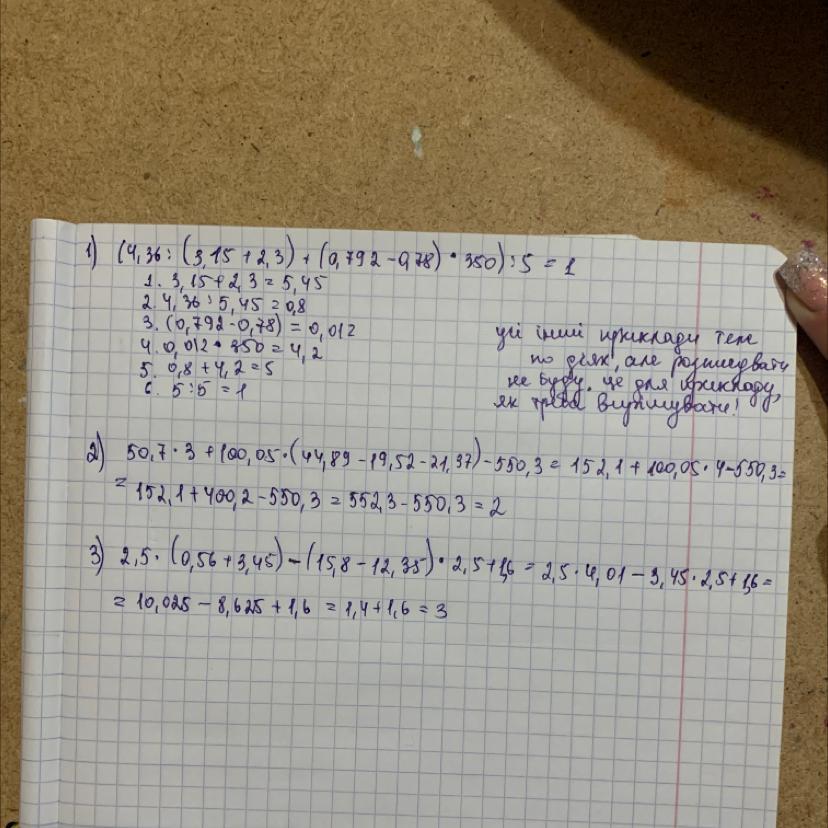 1) (4,36 : (3,15 + 2,3) + (0,792 - 0,78) · 350) : 5 = 1
1. 3,15 + 2,3 = 5,45
2. 4,36 : 5,45 = 0,8
3. (0,792 - 0,78) = 0,012
4. 0,012 · 350 = 4,2
5. 0,8 + 4,2 = 5
6. 5 : 5 = 1
усі інші приклади теж
по діях, але розписувати
не буду. це для прикладу,
як треба
2) 50,7 · 3 + 100,05 · (44,89 - 19,52 - 21,37) - 550,3 = 152,1 + 100,05 · 4 - 550,3 =
= 152,1 + 400,2 - 550,3 = 552,3 - 550,3 = 2
3) 2,5 · (0,56 + 3,45) - (15,8 - 12,35) · 2,5 + 1,6 = 2,5 · 4,01 - 3,45 · 2,5 + 1,6 =
= 10,025 - 8,625 + 1,6 = 1,4 + 1,6 = 3